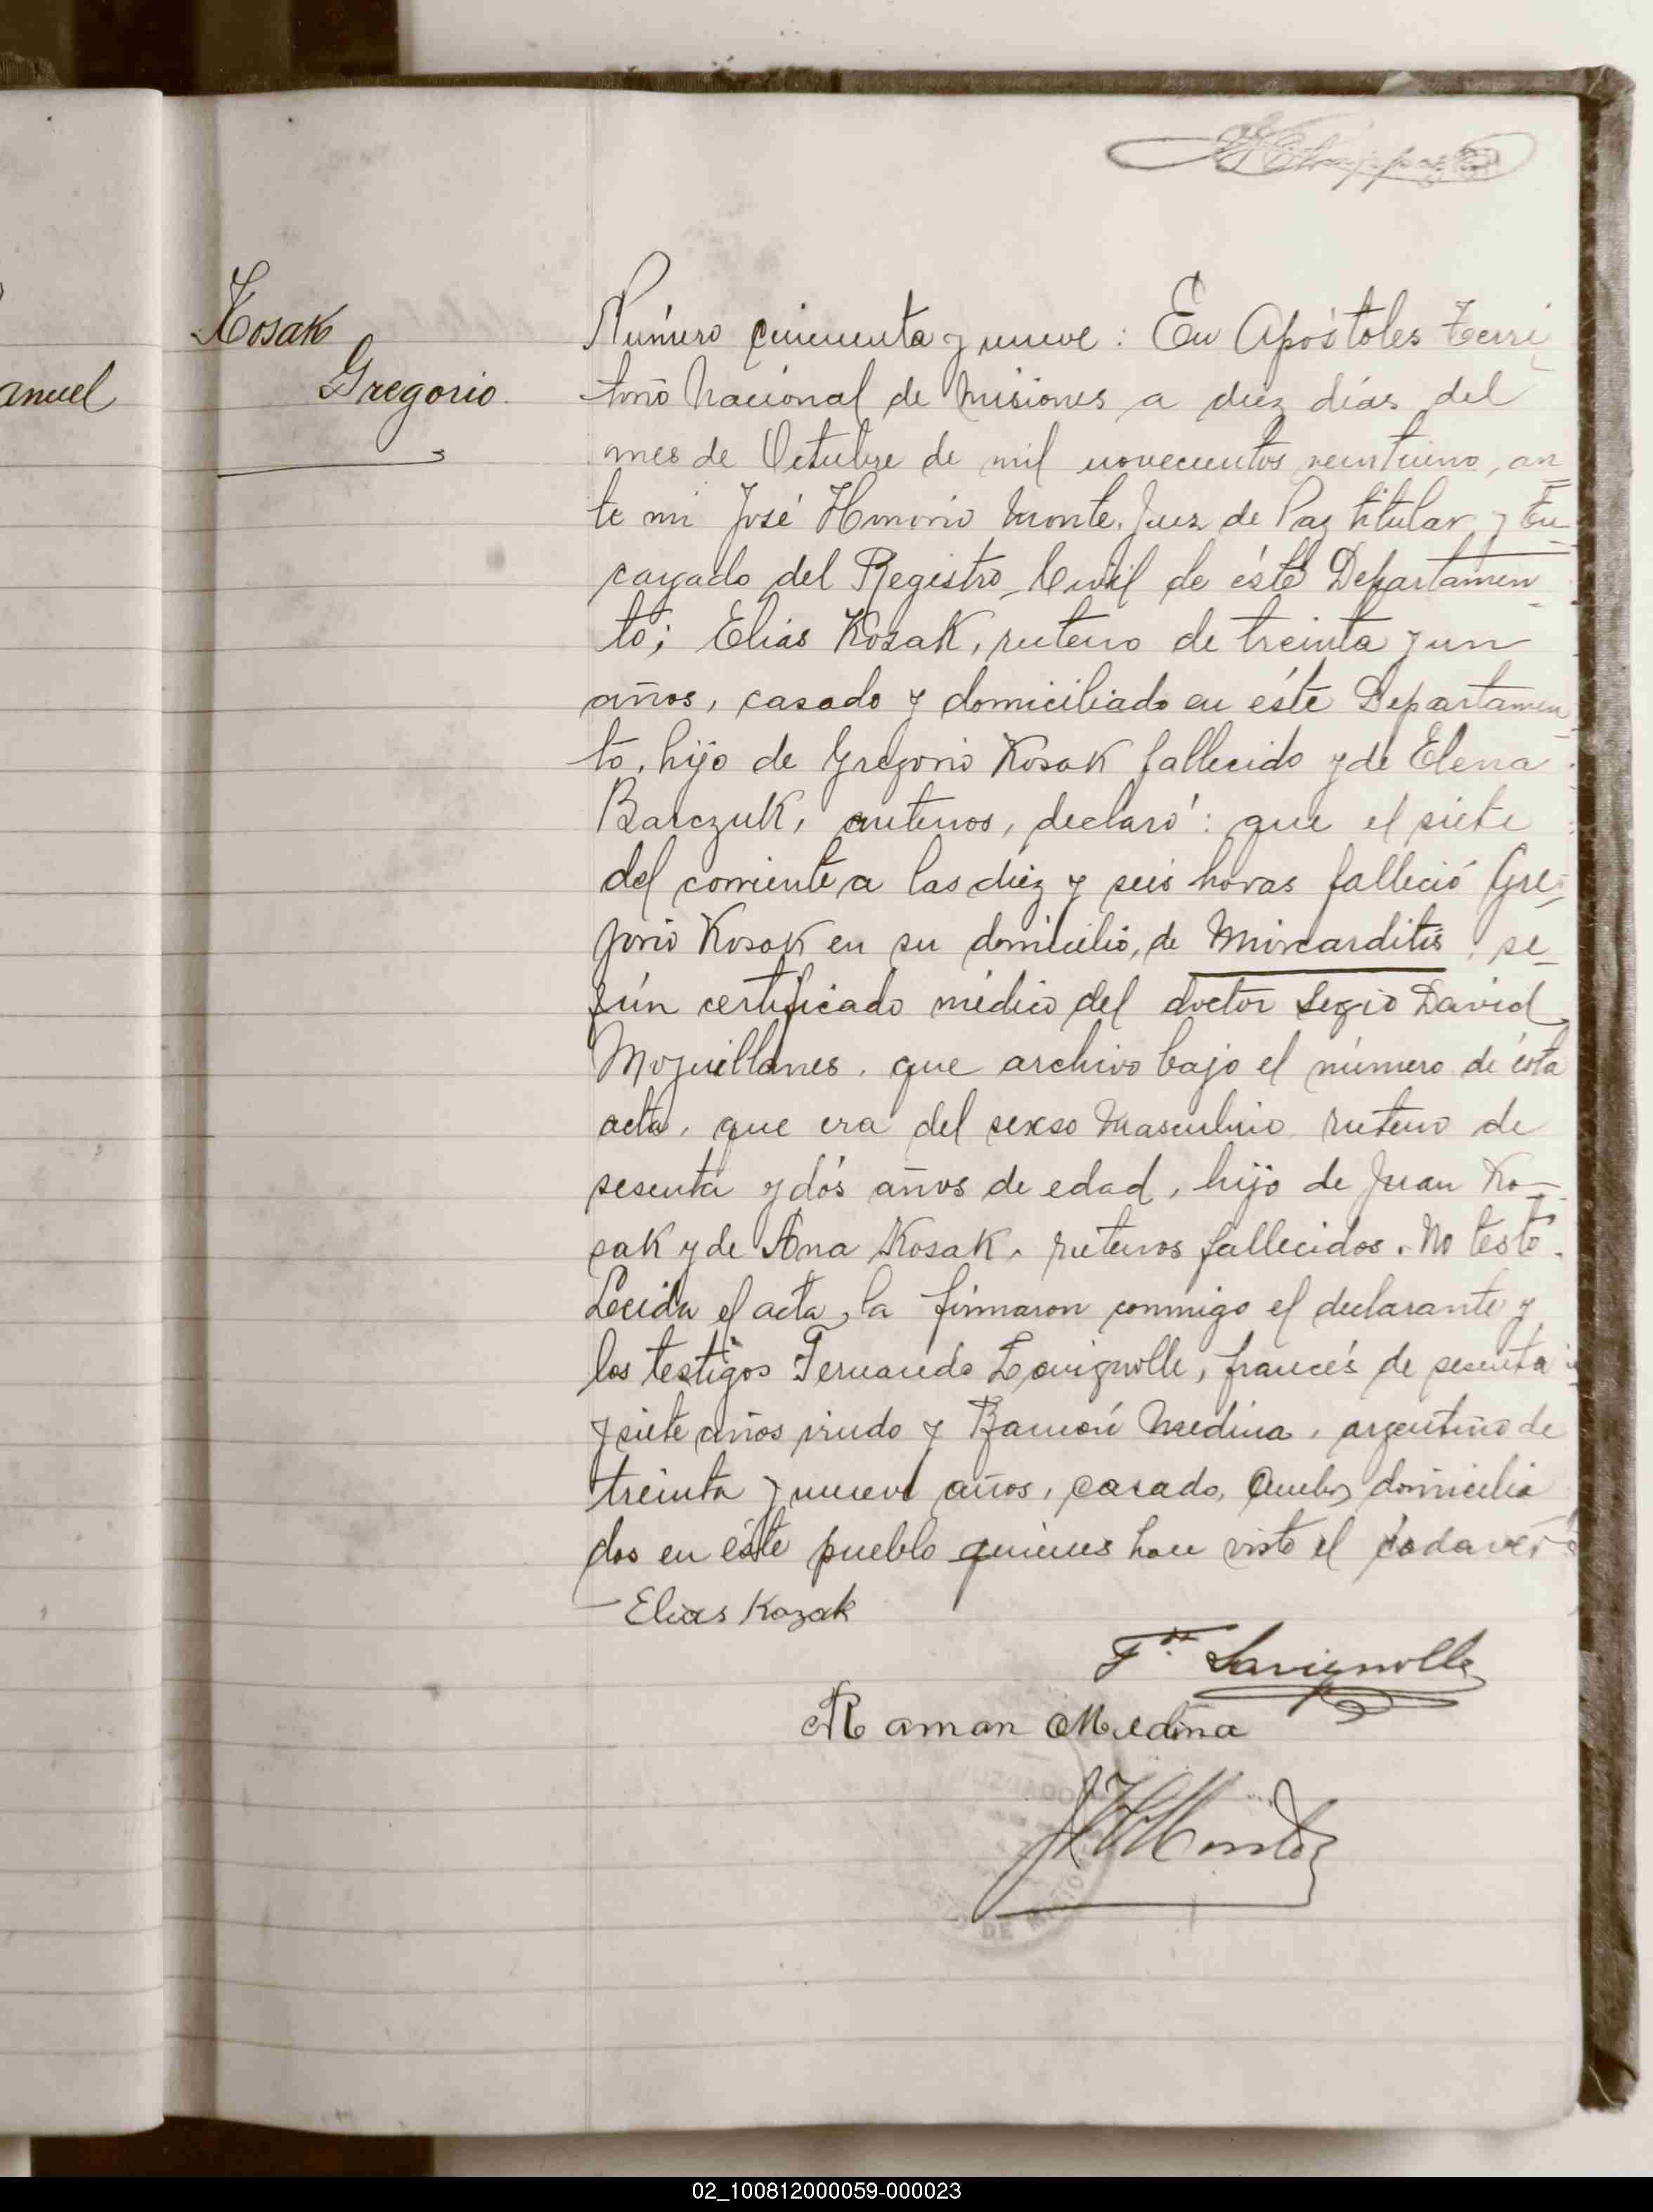 anuel
Kosak
Gregorio.
Número cincuenta y nueve: En Apóstoles Terri
torio Nacional de Misiones a diez días del
mes de Octubre de mil novecientos veintiuno, an
te mi José Honorio Monte, Juez de Paz titular y En
cargado del Registro Civil de éste Departamen
to; Elias Kosak, ruteno de treinta y un
años, casado y domiciliado en éste Departamen
to, hijo de Gregorio Kosak fallecido y de Elena
Barczuk, rutenos, declaró: que el siete
del corriente a las diéz y seis horas falleció Gre
gorio Kosak en su domicilio, de Miocarditis, se
gún certificado médico del doctor Sergio David
Moguillanes, que archivo bajo el número de ésta
acta, que era del sexso masculino ruteno de
sesenta y dós años de edad, hijo de Juan Ko
sak y de Ana Kosak, rutenos fallecidos. No testó.
Leida el acta, la firmaron conmigo el declarante y
los testigos Fernando Lavignolle, francés de sesenta
y siete años viudo y Ramón Medina, argentino de
treinta y nueve años, casado, ambos domicilia
dos en éste pueblo quienes han visto el cadáver
Elias Kozak
F. Lavignolle
Raman Medina
JHMonte
DE
02_100812000059-000023